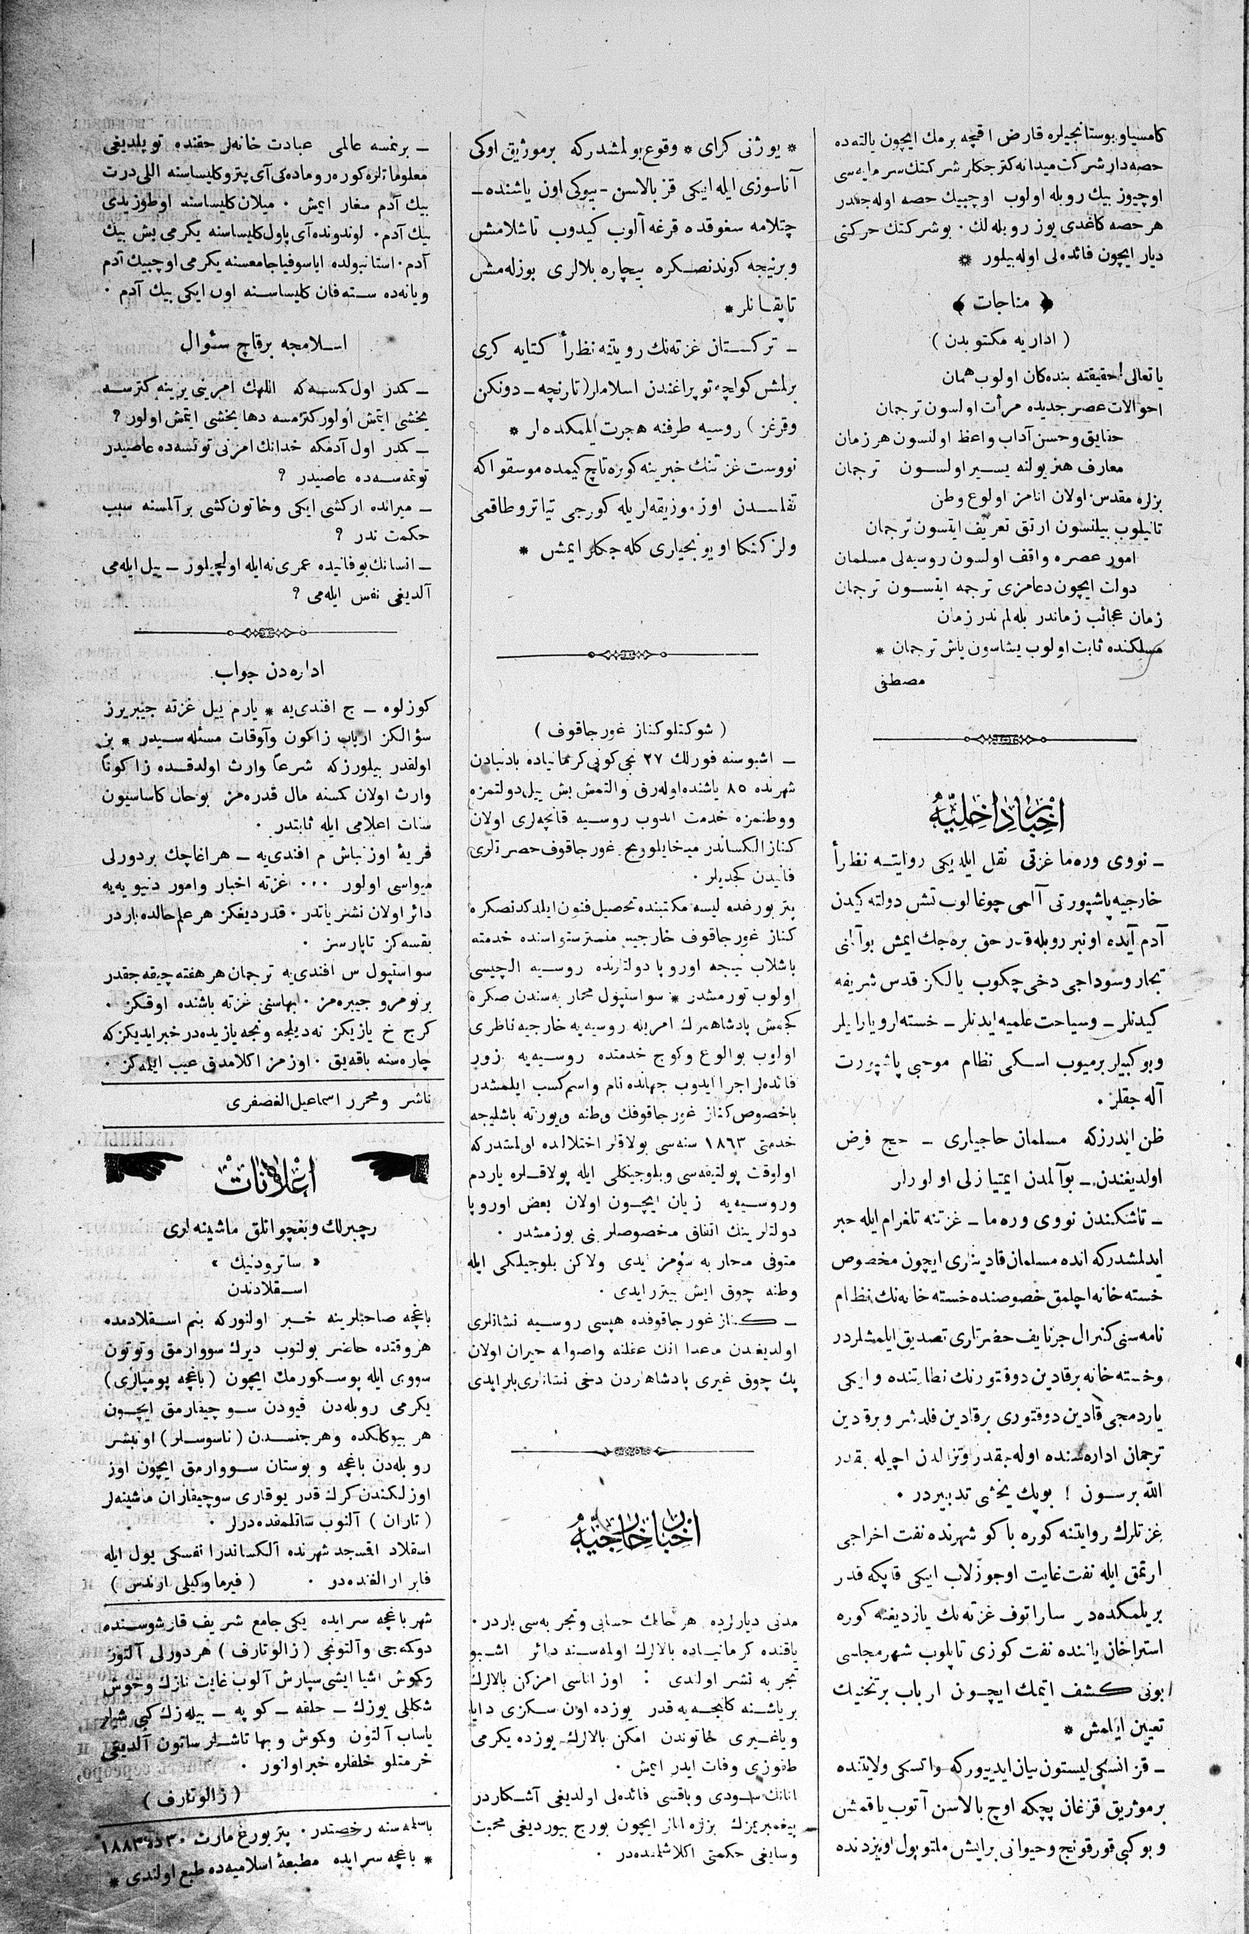 كامسياو بوستانجيلره قارض اقچه برمك ايچون يالته ده
حصه دار شركت ميدانه كترجكلر شركتك سرمايه سى
اوچيوز بيك روبله اولوب اوچبيك حصه اوله جقدر
هر حصه كاغدى يوز روبله لك ۰ بو شركتك حركتى
ديار ايچون فائده لى اوله بيلور *
﴿ مناجات ﴾
( اداريه مكتوبدن )
يا تعالى! حقيقته بنده كان اولوب همان
احوالات عصر جديده مرأت اولسون ترجمان
حقايق وحسن آداب واعظ اولنسون هر زمان
معارف هنر يولنه يسير اولسون ترجمان
بزلره مقدس اولان انامز اولوغ وطن
تانيلوب بيلنسون ارتق تعريف ايتسون ترجمان
امور عصره واقف اولسون روسيه لى مسلمان
دولت ايچون دعامزى ترجمه ايتسون ترجمان
زمان عجائب زماندر بله لم ندر زمان
مسلكنده ثابت اولوب يشاسون ياش ترجمان *
مصطفى
اخبار داخليه
ــ نووى وره ما غزتى نقل ايله يكى روايته نظرأ
خارجيه پاشپورتى آلمى چوغالوب تىش دولته كيدن
آدم آيده اونبر روبله قدر حق بره جك ايمش بو آلنى
تجار وسوداجى دخى چكوب يالكز قدس شريفه
كيدنلر ــ وسياحت علميه ايدنلر ــ خسته لر ويارالر
وبو كبيلر برميوب اسكى نظام موجبى پاشپورت
آله جقلر ۰
ظن ايدرزكه مسلمان حاجيلرى ــ حج فرض
اولديغندن ــ بو آلمدن امتيازلى اولورلر
ــ تاشكندن نووى وره ما ــ غزتنه تلغرام ايله خبر
ايدلمشدركه انده مسلمان قادينلرى ايچون مخصوص
خسته خانه اچلمق خصوصنده خسته خانه نك نظام
نامه سنى كنرال جرنايف حضرتلرى تصديق ايلمشلردر
وخسته خانه برقادين دوقتورنك نظارتنده وايكى
ياردمجى قادين دوقتورى برقادين فلدشر وبرقادين
ترجمان اداره سنده اوله جقدر وتزالدن اچيله جقدر
الله برسون ! بو پك يخشى تدبيردر ۰
غزتلرك روايتنه كوره باكو شهرنده نفت اخراجى
ارتمق ايله نفت غايت اوجوزلاب ايكى قاپكه قدر
بريلمكده در ساراتوف غزته نك يازديغنه كوره
استراخان ياننده نفت كوزى تاپلوب شهر مجلسى
بونى كشف ايتمك ايچون ارباب برتخنيك
تعيين ايلمش *
ــ قزانسكى ليستوق بيان ايدييوركه واتسكى ولايتنده
برموژيق قزغان پچكه اوچ بالاسن آتوب ياقمش
وبو كبى قورقونج وحيوانى بر ايش ملتوپول اويزدنده
* يوژنى كراى * وقوع بولمشدركه برموژيق اوكى
آناسوزى ايله ايكى قز بالاسن ــ بيوكى اون ياشنده ــ
چتلامه سغوقده قرغه آلوب كيدوب تاشلامش
وبرنيجه كوندنصكره بيچاره بلالرى بوزله مش
تاپقانلر *
ــ تركستان غزته نك رويتنه نظرأ كتايه كرى
برلمش كولچه توپراغندن اسلاملر (تارنچه ــ دونكن
وقرغز) روسيه طرفنه هجرت ايلمكده لر *
نووست غزتنك خبرينه كوره تاچ كيمده موسقواكه
تفلسدن اوز موزيقه لريله كورجى تياترو طاقمى
ولزكنكا اويونجيلرى كله جكلر ايمش *
( شوكتلو كناز غورجاقوف )
ــ اشبو سنه فورلك ٢٧ نجى كونى كرمانياده باد نبادن
شهرنده ٨٥ ياشنده اوله رق والتمش بش ييل دولتمزه
ووطنمزه خدمت ايدوب روسيه قانچه لرى اولان
كناز الكساندر ميخايلوويچ غورجاقوف حضرتلرى
فانيدن كچديلر ۰
پتربورغده ليسه مكتبنده تحصيل فنون ايلدكدنصكره
كناز غورجاقوف خارجيه منسترستواسنده خدمته
باشلاب نيجه اوروپا دولتلرنده روسيه الچيسى
اولوب تورمشدر * سواستپول محاربه سندن صكره
كچمش پادشاهمزك امرينه روسيه يه خارجيه ناظرى
اولوب بو الوغ وكوج خدمتده روسيه يه زور
فائده لر اجرا ايدوب جهانده نام واسم كسب ايلمشدر
باخصوص كناز غورجاقوفك وطنه ويورته باشليجه
خدمتى ١٨٦٣ سنه سى پولاقلر اختلالده اولمشدركه
اولوقت پولتيقه سى وبلوجيكلى ايله پولاقلره ياردم
وروسيه يه زيان ايچون اولان بعض اوروپا
دولتلرينك اتفاق مخصوصلرينى بوزمشدر ۰
متوفى محاربه سؤمز ايدى ولاكن بلوجيلكى ايله
وطنه چوق ايش بيتررايدى ۰
ــ كناز غورجاقوفده هپسى روسيه نشانلرى
اولديغندن ماعدا انك عقلنه واصوله حيران اولان
پك چوق غيرى پادشاهلردن دخى نشانلرى بار ايدى
اخبار خارجيه
مدنى ديارلرده هر حالك حسابى وتجربه سى باردر ۰
ياقنده كرمانياده بالالرك اولمه سنه دائر اشبو
تجربه نشر اولندى : اوز اناسى امزكن بالالرك
برياشنه كلنجه يه قدر يوزده اون سكزى دايه
وياغيرى خاتوندن امكن بالالرك يوزده يكرمى
طقوزى وفات ايدر ايمش ۰
انانك سودى وباقسى فائده لى اولديغى آشكاردر
پيغمبريمزك بزلره انالر ايچون بورج بيورديغى محبت
وسايغى حكمتى اكلاشلمده در ۰
ــ برنمسه عالمى عبادت خانه لر حقنده توپلديغى
معلوماتلره كوره روماده كى آى پترو كليساسنه اللى درت
بيك آدم سغار ايمش ۰ ميلان كليساسنه اوطوز يدى
بيك آدم ۰ لوندونده آى پاول كليساسنه يكرمى بش بيك
آدم ۰ استانبولده اياسوفيا جامعسنه يكرمى اوچبيك آدم
ويانه ده سته فان كليساسنه اون ايكى بيك آدم ۰
اسلامجه برقاچ سئوال
ــ كمدر اول كمسه كه اللهك امرينى يرينه كترسه
يخشى ايتمش اولور كترمسه دها يخشى ايتمش اولور ؟
ــ كمدر اول آدمكه خدانك امرنى توتسه ده عاصيدر
توتمه سه ده عاصيدر ؟
ــ ميراثده اركشى ايكى وخاتون كشى بر آلمسنه سبب
حكمت ندر ؟
ــ انسانك بو فانيده عمرى نه ايله اولچيلور ــ ييل ايله مى
آلديغى نفس ايله مى ؟
اداره دن جواب
كوزلوه ــ ج افندى يه * يارم ييل غزته جيبريرز
سؤالكز ارباب زاكون وآوقات مسئله سيدر * بز
اولقدر بيلورزكه شرعاً وارث اولدقده زاكوناً
وارث اولان كمسنه مال قدره مز بوحال كاساسيون
سنات اعلامى ايله ثابتدر ۰
قريهٔ اوزنباش م افندى يه ــ هراغاچك بردورلى
ميواسى اولور ۰۰۰ غزته اخبار وامور دنيويه يه
دائر اولان نشرياتدر ۰ قدرديفكز هر علم حالده باردر
نفسه كز تاپارسز ۰
سواستپول س افندى يه ترجمان هر هفته چيقه جقدر
برنومرو جيبره مز ۰ بهاسنى غزته باشنده اوقكز ۰
كرج خ يازيكز نه ديلجه ونجه يازيده در خبر ايديكزكه
چاره سنه باقه يق ۰ اوزمز اكلامدق عيب ايلمه كز ۰
ناشر ومحرر اسماعيل الغصفرى
اعلانات
رجبرلك وبغچوانلق ماشينه لرى
« ساترودنيك »
اسقلادندن
باغچه صاحبلرينه خبر اولنوركه بنم اسقلادمده
هر وقتده حاضر بولنوب ديرك سووارمق وتوتون
سووى ايله پوسكورمك ايچون (باغچه پومپالرى)
يكرمى روبله دن قيودن سو چيقارمق ايچون
هر بيوكلكده وهر جنسدن (ناسوسلر) اونبشر
روبله دن باغچه وبوستان سووارمق ايچون اوز
اوزلكندن كرك قدر يوقارى سو چيقاران ماشينه لر
(تاران) آلنوب ساتلمقده درلر ۰
اسقلاد اقمسجد شهرنده آلكساندرا نفسكى يول ايله
فابر ارالغنده در ۰ ( فيرما وكيلى ارندس )
شهر باغچه سرايده يكى جامع شريف قارشوسنده
دوكمه جى وآلتونجى (زالوتارف) هر دورلى آلتون
وكموش اشيا ايشى سپارش آلوب غايت نازك وخوش
شكللى يوزك ــ حلقه ــ كوپه ــ بيله زك كبى شيلر
ياساب آلتون وكموش وبها تاشلر ساتون آلديغى
خرمتلو خلقلره خبر اولنور ۰
( زالوتارف )
باسلمه سنه رخصتدر ۰ پتربورغ مارت ٣٠ ده ١٨٨٣
* باغچه سرايده مطبعهٔ اسلاميه ده طبع اولندى *